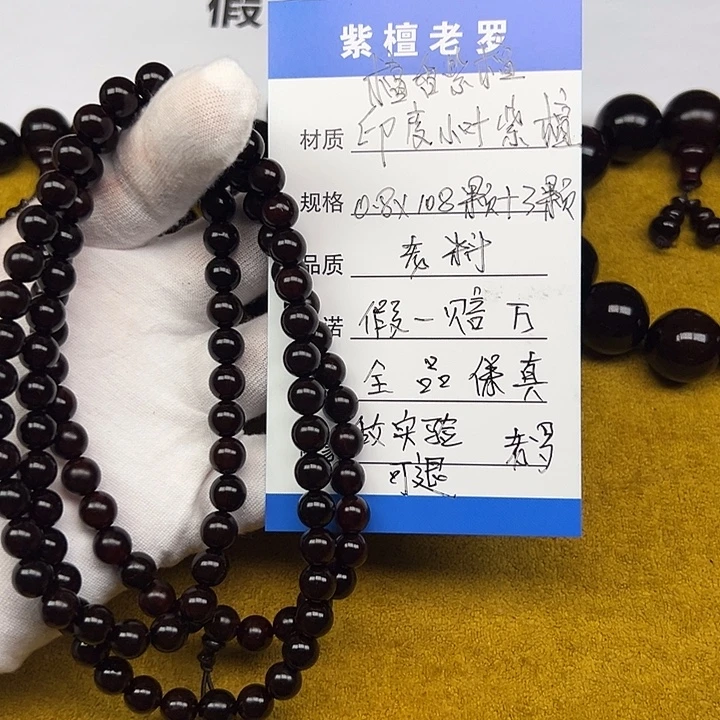 假
紫檀老罗
檀香紫檀
材质 印度小叶紫檀
规格 0.8x108颗+3颗
品质 老料
诺 假一赔万
全品保真
做实验 老罗
可退